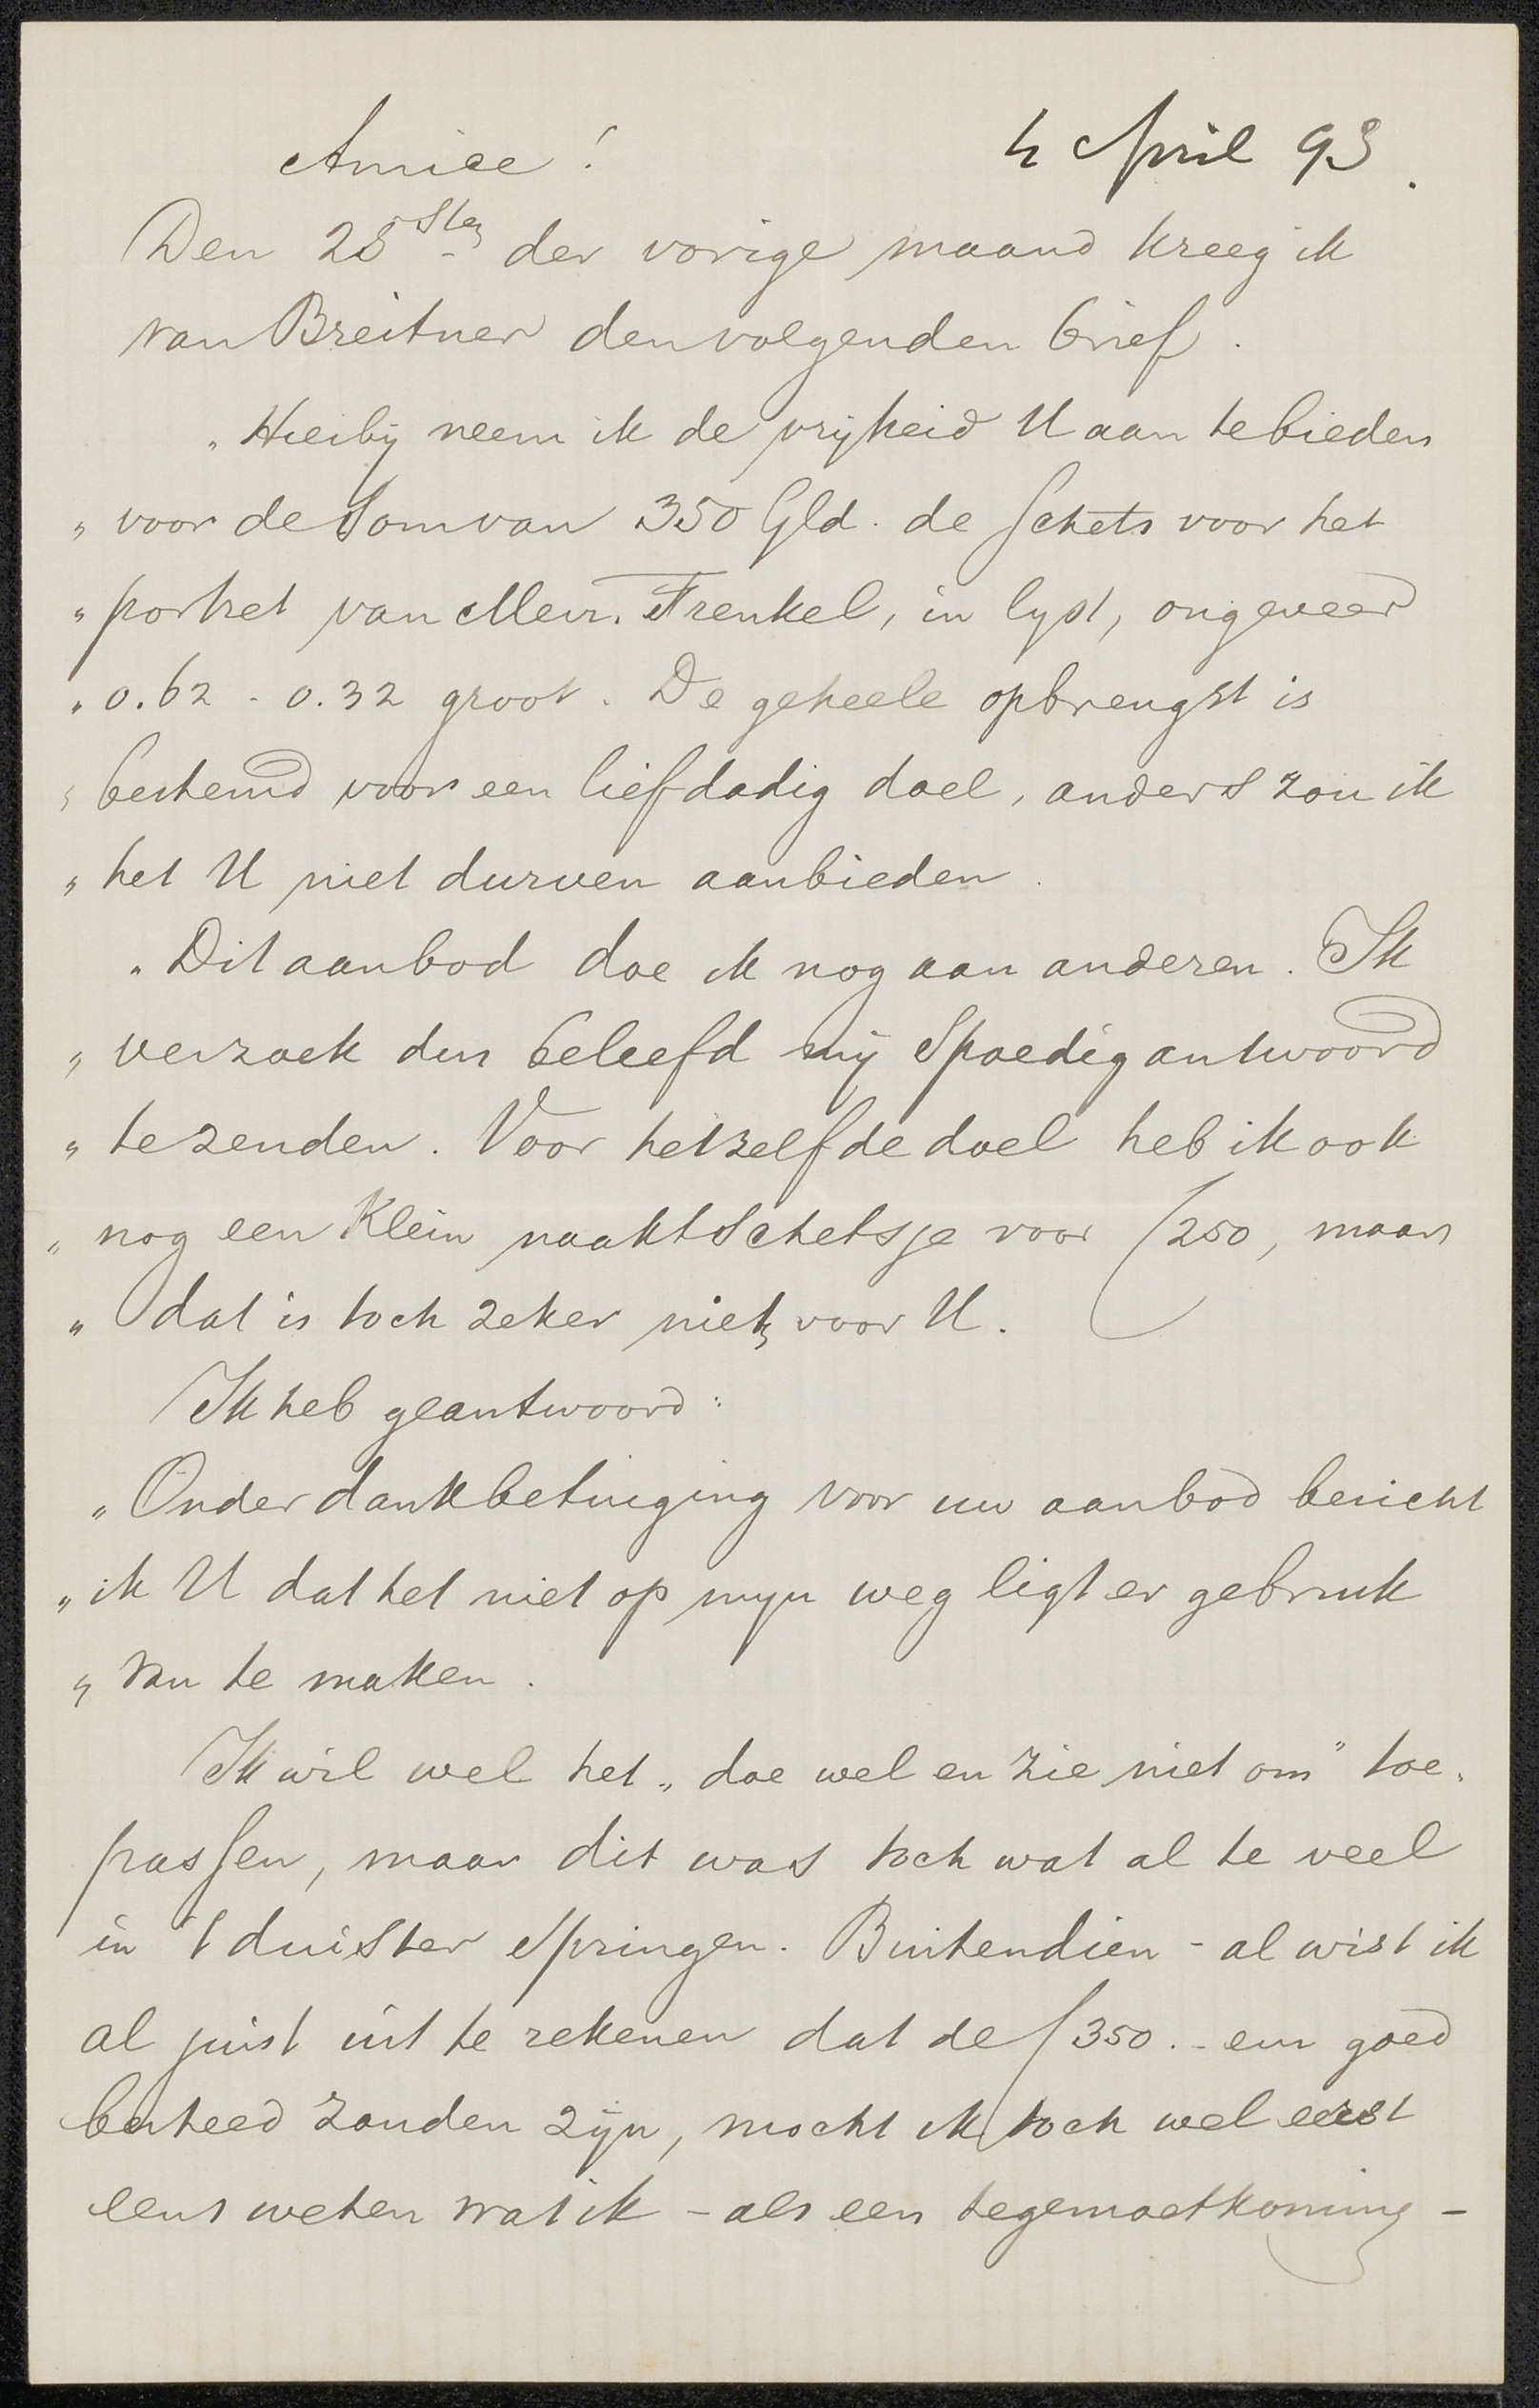 Amice! 4 April 93.
Den 28sten der vorige maand kreeg ik
van Breitner den volgenden brief.
„Hierbij neem ik de vrijheid U aan te bieden
„voor de Som van 350 Gld. de schets voor het
„portret van Mevr. Frenkel, in lyst, ongeveer
„0.62 - 0.32 groot. De geheele opbrengst is
„bestemd voor een liefdadig doel, anders zou ik
„het U niet durven aanbieden.
„Dit aanbod doe ik nog aan anderen. Ik
„verzoek dus beleefd mij Spoedig antwoord
„te zenden. Voor hetzelfde doel heb ik ook
„nog een Klein naaktschetsje voor ƒ250, maar
„dat is toch zeker niets voor U.
Ik heb geantwoord:
„Onder dankbetuiging voor uw aanbod bericht
„ik U dat het niet op myn weg ligt er gebruik
„van te maken.
Ik wil wel het „doe wel en zie niet om" toe-
passen, maar dit was toch wat al te veel
in 't duister springen. Buitendien - al wist ik
al juist uit te rekenen dat de ƒ350.- een goed
besteed zouden zijn, mocht ik toch wel eerst
eens weten wat ik - als een tegemoetkoming -